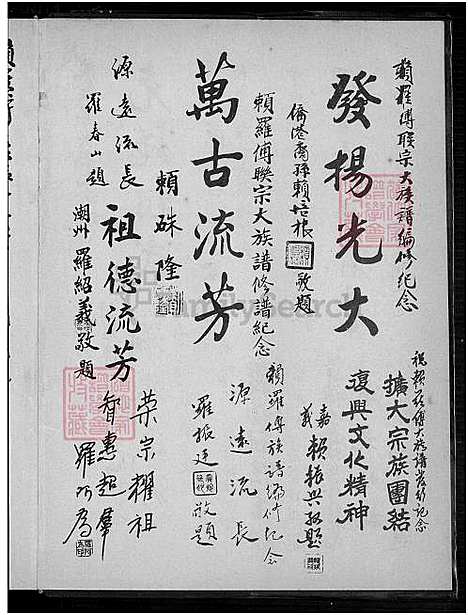 賴羅傅聯宗大族譜編修紀念
發揚光大
僑港裔孫賴培根敬題
祝賴羅傅大族譜發行紀念
擴大宗族團結
復興文化精神
嘉義賴振興敬題
賴羅傅聯宗大族譜修譜紀念
萬古流芳
賴硃隆
賴羅傅族譜編修紀念
源遠流長
羅振廷敬題
源遠流長
羅春山題
祖德流芳
潮州羅紹羲敬題
榮宗耀祖
智惠超群
familysearch